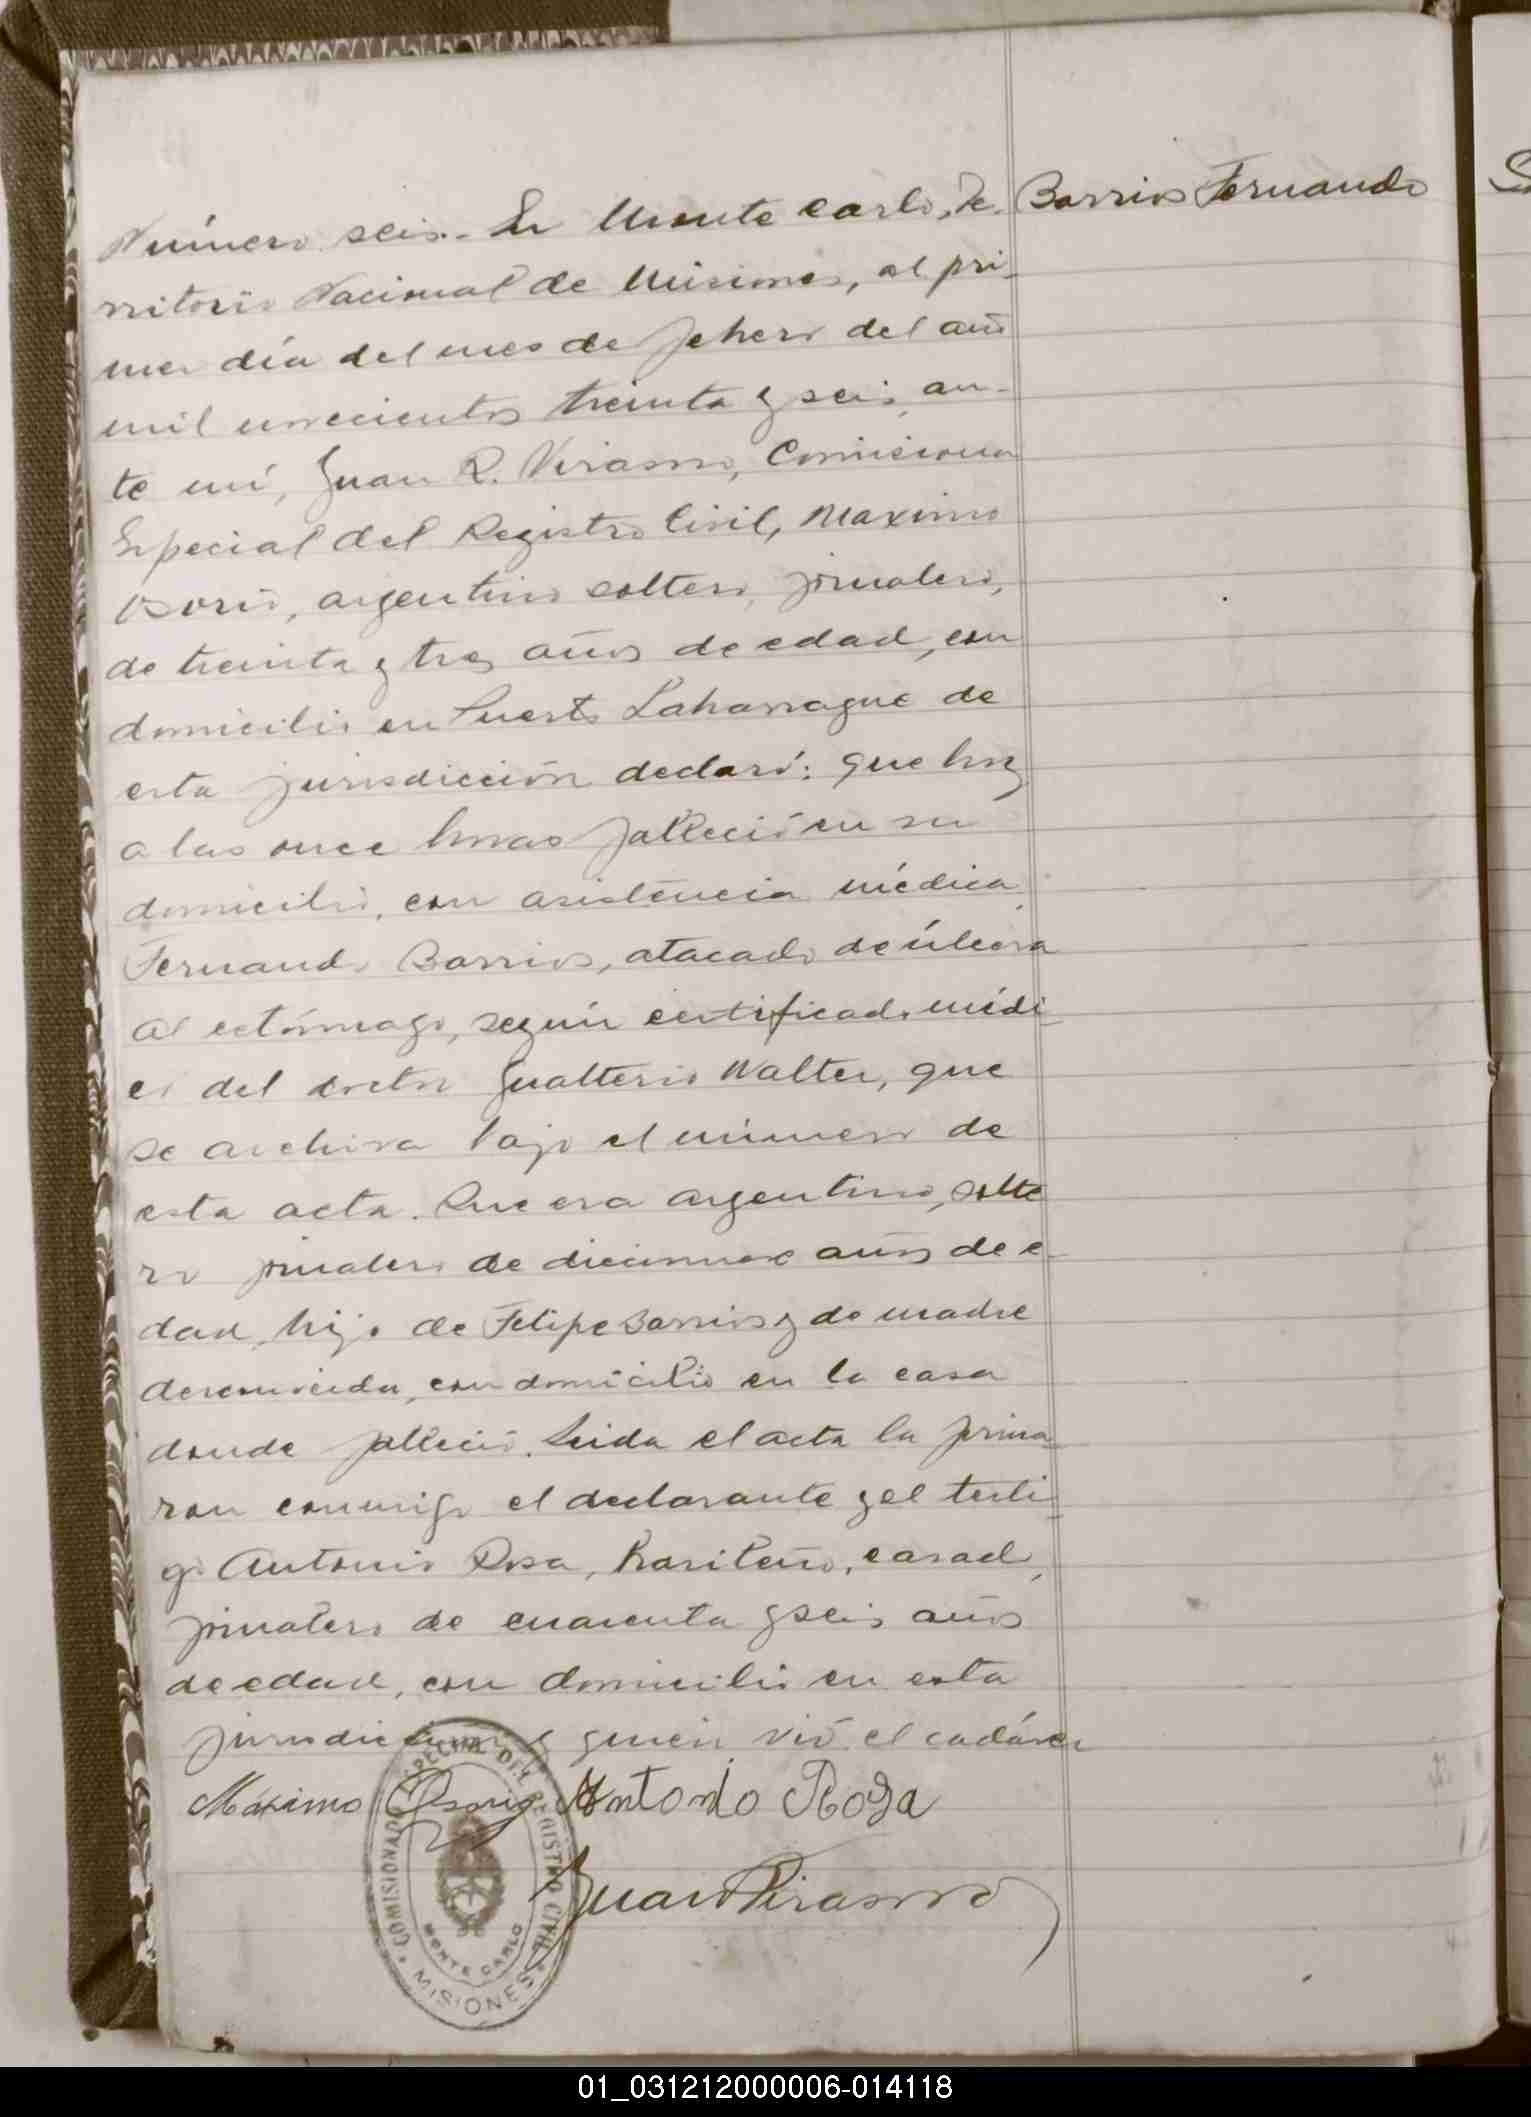 Barrios Fernando
Número seis.- En Monte Carlo, Te-
rritorio Nacional de Misiones, al pri-
mer día del mes de febrero del año
mil novecientos treinta y seis, an-
te mí, Juan R. Verasoro, Comisionado
Especial del Registro Civil, Maximo
Osorio, argentino soltero, jornalero,
de treinta y tres años de edad, con
domicilio en Puerto Laharrague de
esta jurisdicción declaró: que hoy
a las once horas falleció en su
domicilio, con asistencia médica
Fernando Barrios, atacado de úlcera
al estómago, según certificado médi
co del doctor Gualterio Walter, que
se archiva bajo el número de
esta acta. Que era argentino, solte
ro jornalero de diecinueve años de e-
dad, hijo de Felipe Barrios y de madre
desconocida, con domicilio en la casa
donde falleció. Leida el acta la firma
ron conmigo el declarante y el testi
go Antonio Rosa, brasileño, casado,
jornalero de cuarenta y seis años
de edad, con domicilio en esta
jurisdicción y quien vió el cadáver
Máximo Osorio Antonio Rosa
Juan Verasoro
COMISIONADO ESPECIAL DEL REGISTRO CIVIL
MONTE CARLO
MISIONES
01_031212000006-014118